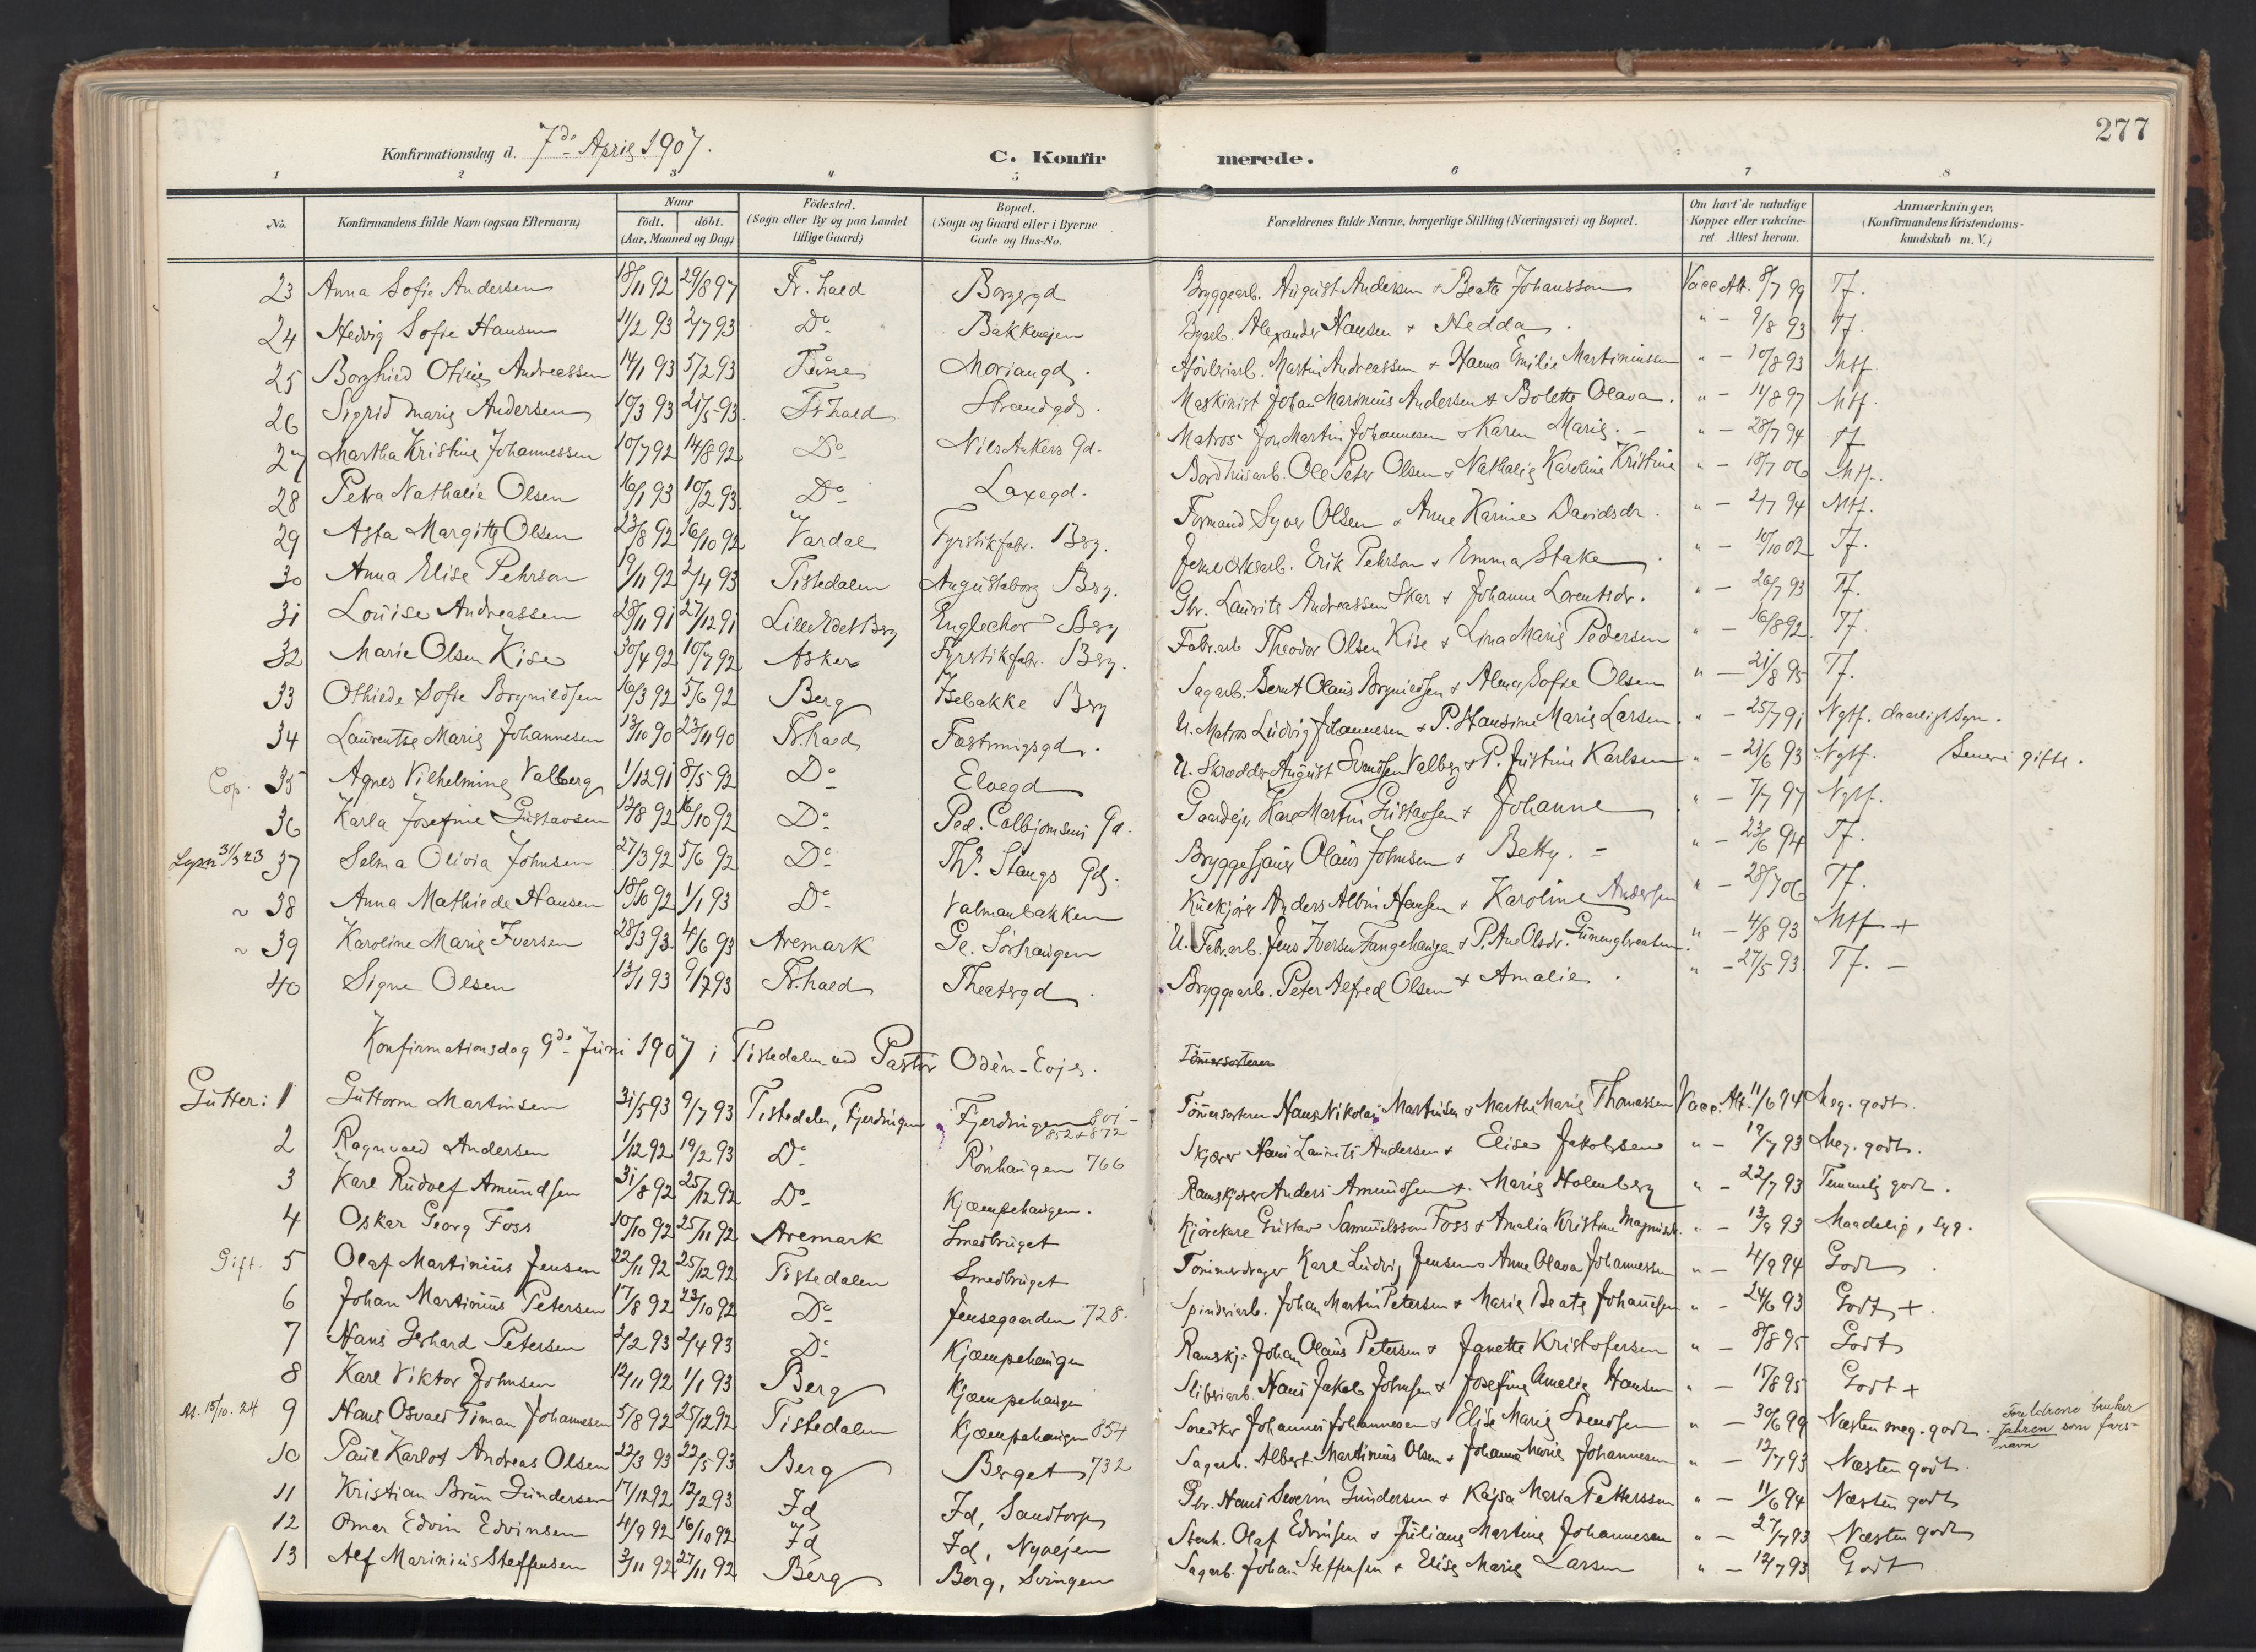 277
Konfirmationsdag d. 7de April 1907.
C. Konfirmerede.
1 2 3 4 5 6 7 8
No. Konfirmandens fulde Navn (ogsaa Efternavn) Naar født. døbt. (Aar, Maaned og Dag) Fødested. (Sogn eller By og paa Landet tillige Gaard) Bopæl. (Sogn og Gaard eller i Byerne Gade og Hus-No. Forældrenes fulde Navne, borgerlige Stilling (Næringsvei) og Bopæl. Om havt de naturlige Kopper eller vakcineret Attest herom. Anmærkninger. (Konfirmandens Kristendomskundskab m. V.)
23 Anna Sofie Andersen 18/11 92 29/8 97 Fr.hald Borgergd Bryggearb. August Andersen & Beata Johansson Vacc Att. 8/7 99 Tf.
24 Hedvig Sofie Hansen 11/2 93 2/7 93 Do Bakkenejen Alexander Hansen & Hedda " - 9/8 93 Tf.
25 Borghild Otilie Andreassen 14/1 93 5/2 93 Moriangd. Martin Andreassen & Hanna Emilie Martiniussen " - 10/8 93 Mtf.
26 Sigrid Marie Andersen 19/3 93 21/5 93. Fr.hald Strandgd. Maskinist Johan Marinius Andersen & Bolette Olava. " - 11/8 97 Mtf.
27 Martha Kristine Johannessen 10/7 92 14/8 92 Do Nils Ankers Gd. Matros Jon Martin Johannesen & Karen Marie. - " - 28/7 94 Tf
28 Petra Nathalie Olsen 16/1 93 10/2 93. Do Laxegd. Bordhusarb. Ole Peter Olsen & Nathalie Karoline Kristine " - 18/7 06 Mtf.
29 Asta Margitte Olsen 23/8 92 16/10 92 Vardal Fyrstikfabr. Berg. Formand Syver Olsen & Anne Karine Davidsdr. " - 2/7 94 Mtf.
30 Anna Elise Pehrson 19/11 92 2/4 93 Tistedalen Augustaborg Berg. Erik Pehrson & Emma Stake " - 10/10 02 Tf.
31 Louise Andreassen 28/11 91 27/12 91 Lille Edet Berg Englechor Berg Gbr. Laurits Andreassen Skar & Johanne Lorentsdr. " - 26/7 93 Tf.
32 Marie Olsen Kise 30/4 92 10/7 92 Asker Fyrstikfabr. Berg. Fabr.arb Theodor Olsen Kise & Lina Marie Pedersen " - 16/8 92. Tf
33 Othilde Sofie Brynildsen 16/3 92 5/6 92 Berg Isebakke Berg Sagarb. Bernt Olaus Brynildsen & Alma Sofie Olsen " - 21/8 95 Tf.
34 Laurentse Marie Johannesen 13/10 90 23/11 90 Fr.hald Fæstningsgd. U. Matros Ludvig Johannesen & P. Hansine Marie Larsen. " - 25/7 91 Ngtf. daarligt Syn.
Cop. 35 Agnes Vilhelmine Valberg 1/12 91 8/5 92 Do Elvegd U. Skrædder August Svendsen Valberg & P. Justine Karlsen " - 21/6 93 Ngtf. Senere gifte.
36 Karla Josefine Gustavsen 12/8 92 16/10 92 Do Ped. Colbjørnsens Gd. Gaardejer Karl Martin Gustavsen & Johanne " - 7/7 97 Ngtf.
37 Selma Olivia Johnsen 27/3 92 5/6 92 Do Ths. Stangs Gd. Bryggesjauer Olaus Johnsen & Betty. - " - 23/6 94 Tf.
~ 38 Anna Mathilde Hansen 18/10 92 1/1 93 Do Valmanbakken Anders Albin Hansen & Karoline Andersen " - 28/7 06 Tf.
~ 39 Karoline Marie Iversen 28/3 93. 4/6 93 Aremark Gl. Sørhaugen U. Fabr.arb. Jens Iversen Fangehaugen & P. Ane Olsdr. " - 4/8 93 Mtf +
40 Signe Olsen 13/1 93 9/7 93 Fr.hald Theatergd. Bryggearb. Peter Alfred Olsen & Amalie. " - 27/5 93. Tf. -
Konfirmationsdag 9de Juni 1907 i Tistedalen ved Pastor Odèn-Eojes. Tømmersorterer
Gutter: 1 Guttorm Martinsen 31/5 93 9/7 93 Tistedalen, Fjerdingen Fjerdingen 801 - 852 & 872 Tømmersorterer Hans Nikolai Martinsen & Marthe Marie Thomassen Vacc. Att. 11/6 94 Meg. godt.
2 Ragnvald Andersen 1/12 92 19/2 93 Do Rönhaugen 766 Skjærer Hans Laurits Andersen & Elise Jakobsen " - 19/7 93 Meg. godt.
3 Karl Rudolf Amundsen 31/8 92 25/12 92 Do Kjæmpehaugen. Ramskjører Anders Amundsen & Marie Holmberg " - 22/7 93 Temmelig godt.
4 Oskar Georg Foss 10/10 92 25/11 92 Aremark Smedbruget Kjørekarl Gustav Samuelsson Foss & Amalia Kristine Magnusdr. " - 13/9 93 Maadelig, syg.
Gift. 5 Olaf Martinius Jensen 22/11 92 25/12 92 Tistedalen Smedbruget Tømmerdrager Karl Ludvig Jensen & Anne Olava Johannessen " - 4/9 94 Godt.
6 Johan Martinius Petersen 17/8 92 23/10 92 Do Jensegaarden 728. Spinderiarb. Johan Martin Petersen & Marie Beate Johannesen " - 24/6 93 Godt +.
7 Hans Gerhard Petersen 2/2 93 2/4 93 Do Kjæmpehaugen Ramskj. Johan Olaus Petersen & Janette Kristofersen " - 8/8 95 Godt
8 Karl Viktor Johnsen 12/11 92 1/1 93 Berg Kjæmpehaugen Sliberiarb. Hans Jakob Johnsen & Josefine Amalie Hansen " - 15/8 95 Godt +
At. 15/10. 24 9 Hans Osvald Timan Johannesen 5/8 92 25/12 92 Tistedalen Kjæmpehaugen 854 Snedker Johannes Johannesen & Elise Marie Svendsen " - 30/6 99 Næsten meg. godt. Forældrene bruker Jahren som farsnavn
10 Paul Karlot Andreas Olsen 22/3 93 22/5 93 Berg Berget 732 Sagarb. Albert Martinius Olsen & Johanne Marie Johannesen " - 12/7 93 Næsten godt.
11 Kristian Brun Gundersen 17/12 92 12/2 93 Id Id, Sandtorp Gbr. Hans Severin Gundersen & Kajsa Maria Pettersson " - 11/6 94 Næsten godt
12 Omar Edvin Edvinsen 4/9 92 16/10 92 Id Id, Nyvejen Stenh. Olaf Edvinsen & Juliane Martine Johannesen " - 27/7 93 Næsten godt
13 Alf Marinius Steffensen 3/11 92 27/11 92 Berg Berg, Svingen Sagarb. Johan Steffensen & Elise Marie Larsen " - 12/7 93 Godt